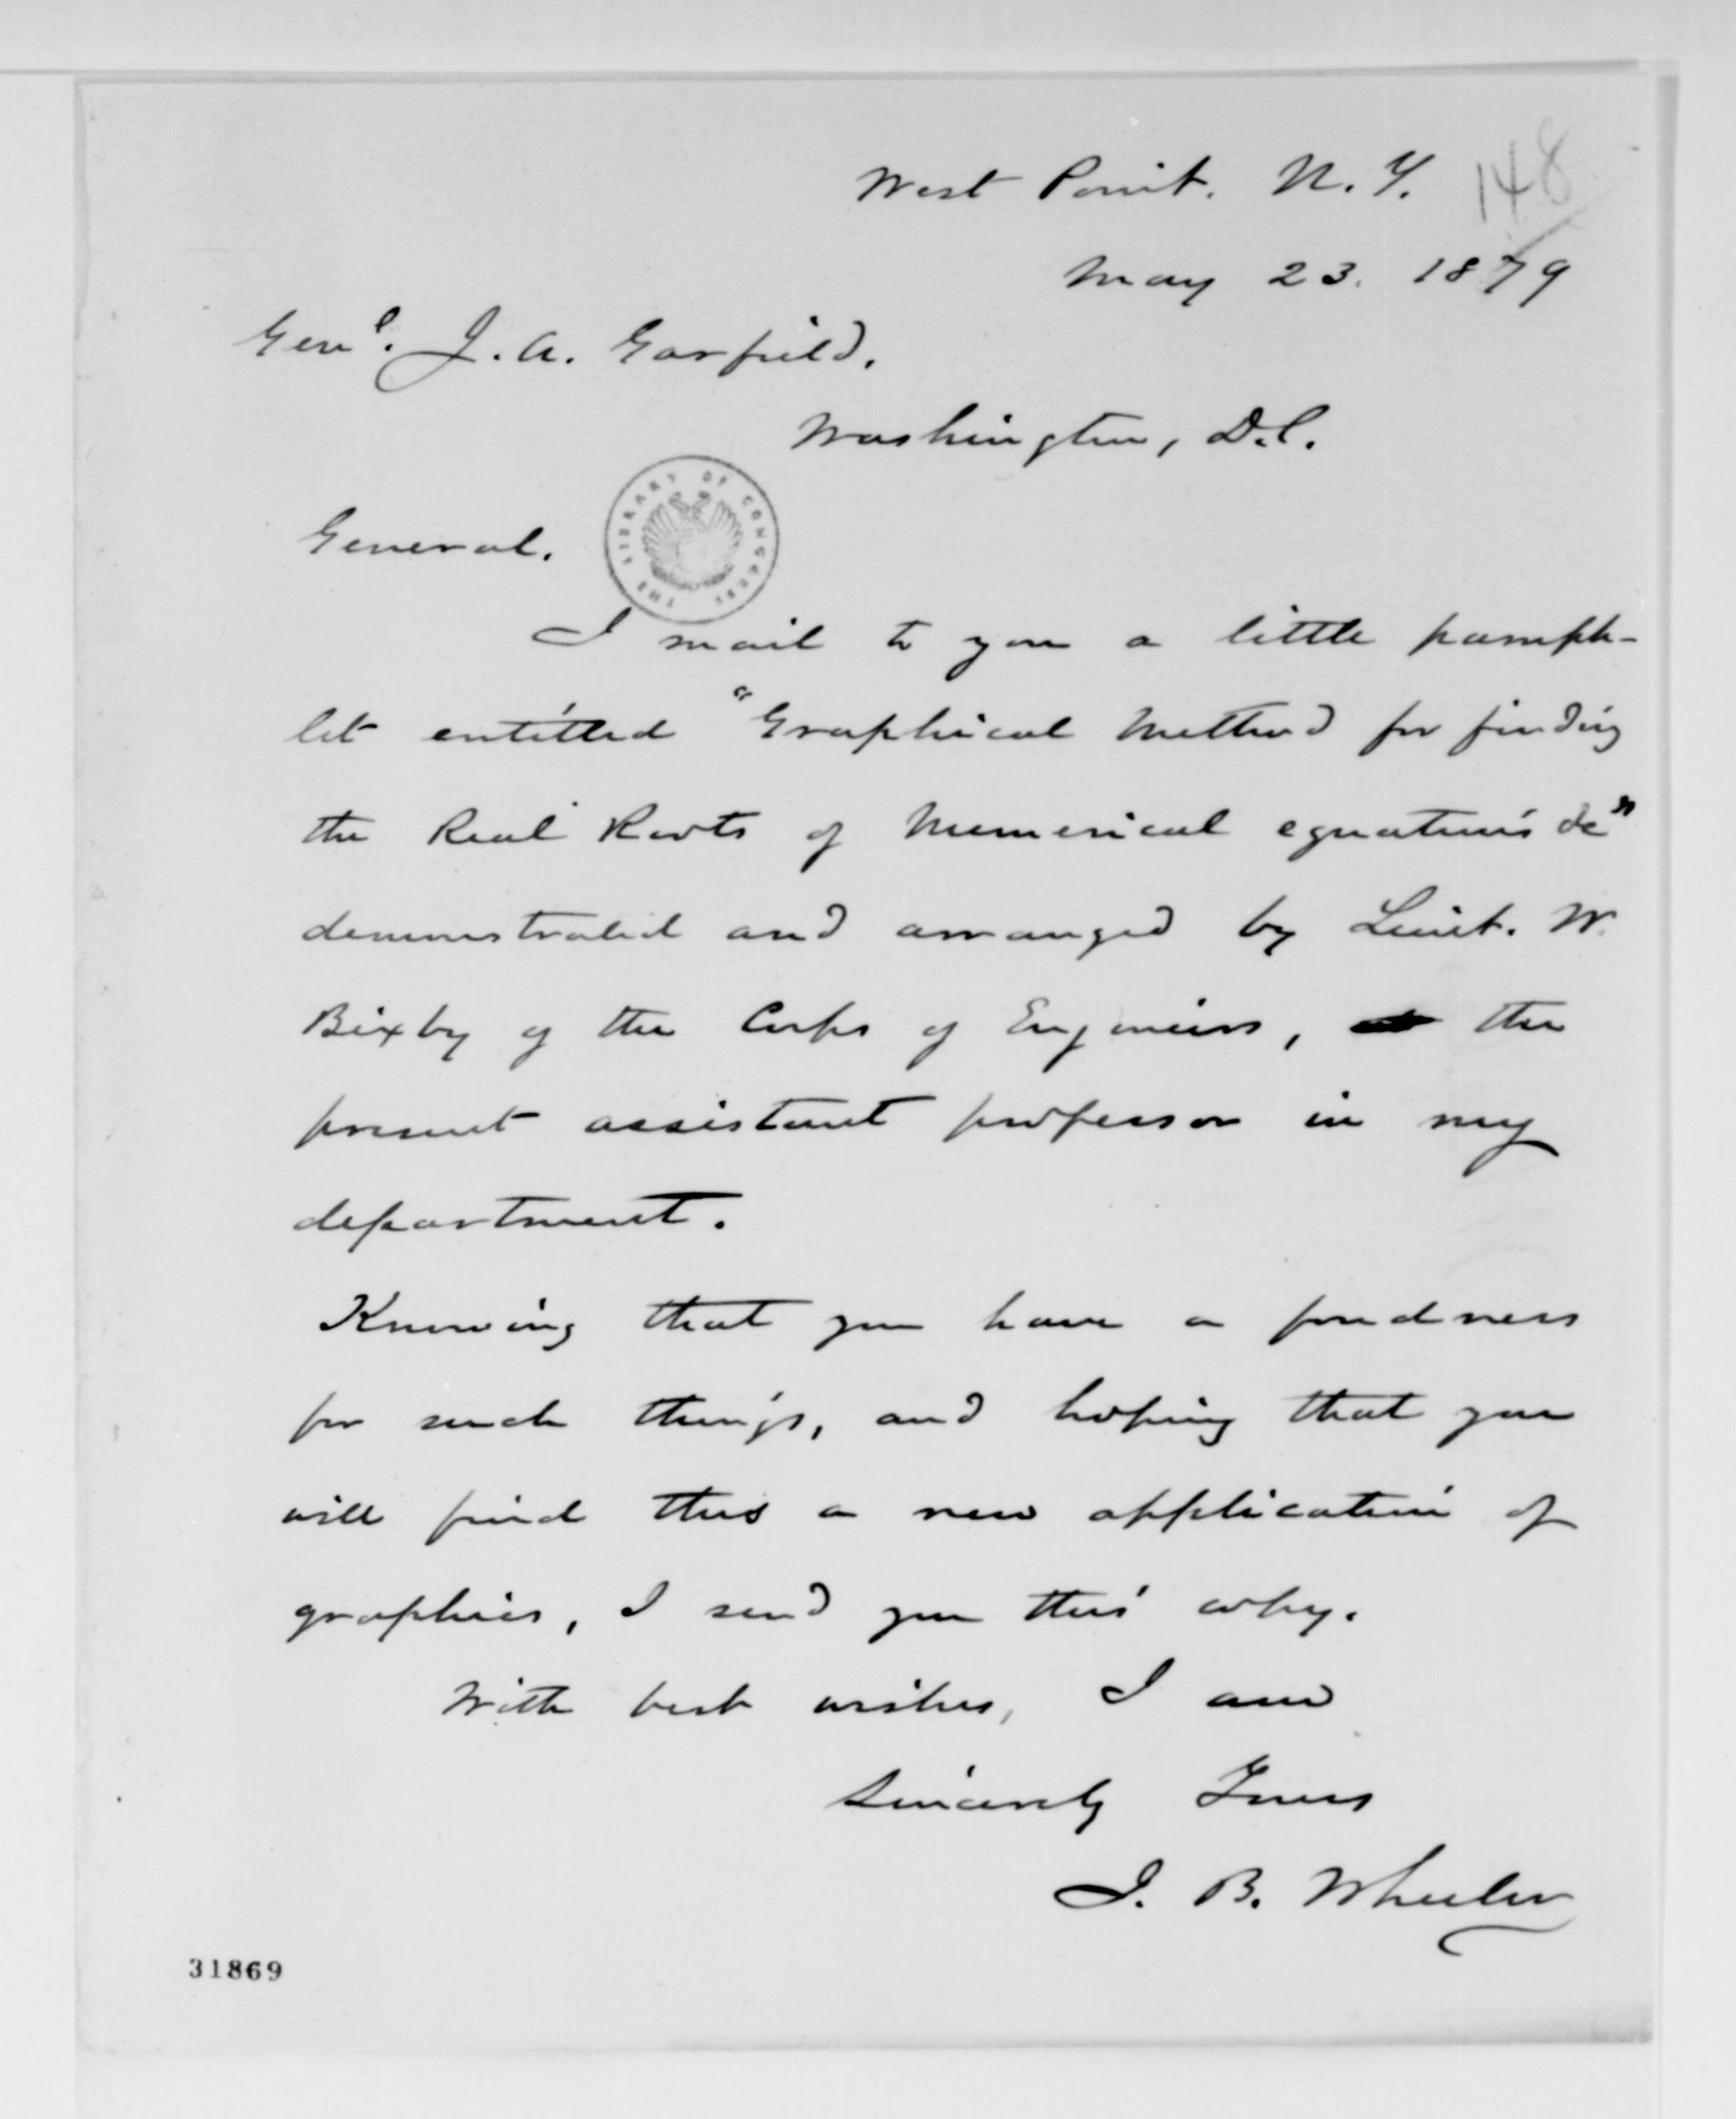 148
West Point. N.Y.
May 23. 1879
Genl. J. A. Garfield.
Washington, D.C.
General.
THE LIBRARY OF CONGRESS
I mail to you a little pamph-
let entitled "Graphical Method for finding
the Real Roots of Numerical equations &c"
demonstrated and arranged by Lieut. W.
Bixby of the Corps of Engineers, the
present assistant professor in my
department.
Knowing that you have a fondness
for such things, and hoping that you
will find this a new application of
graphics, I send you this copy.
With best wishes, I am
Sincerely Yours
J. B. Wheeler
31869